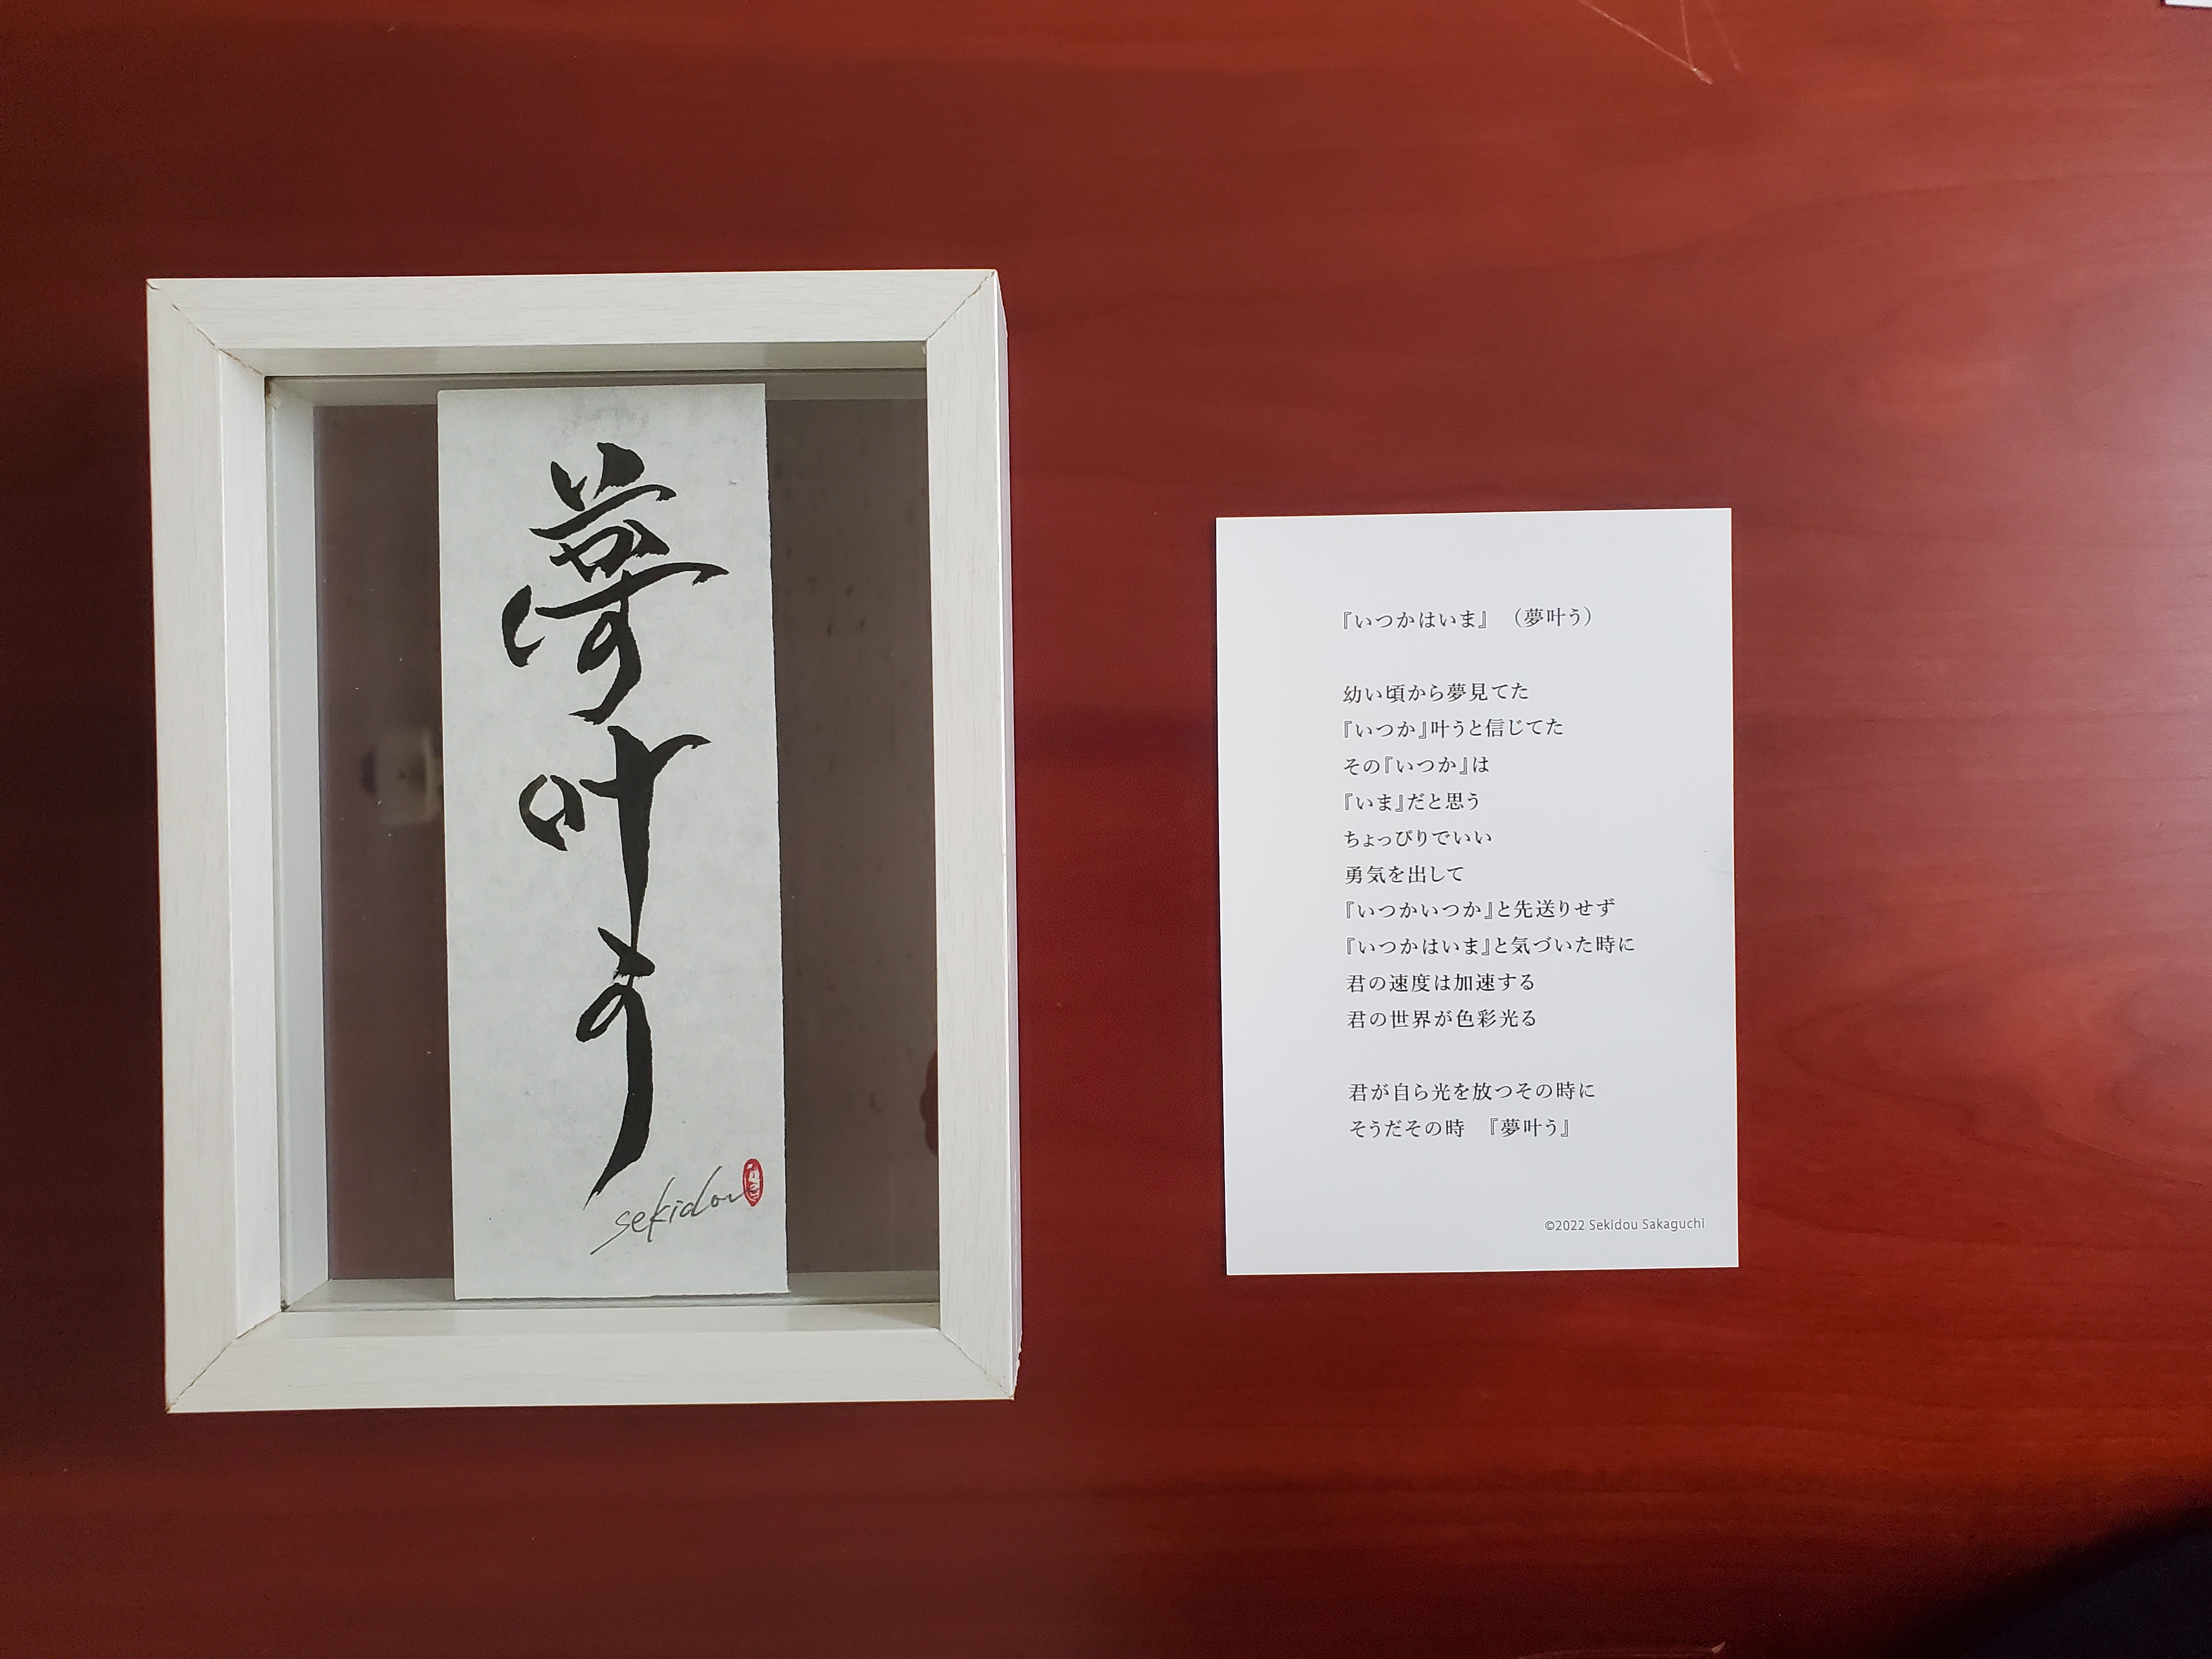 夢叶う
sekidou
『いつかはいま』 （夢叶う）
幼い頃から夢見てた
『いつか』叶うと信じてた
その『いつか』は
『いま』だと思う
ちょっぴりでいい
勇気を出して
『いつかいつか』と先送りせず
『いつかはいま』と気づいた時に
君の速度は加速する
君の世界が色彩光る
君が自ら光を放つその時に
そうだその時 『夢叶う』
©2022 Sekidou Sakaguchi